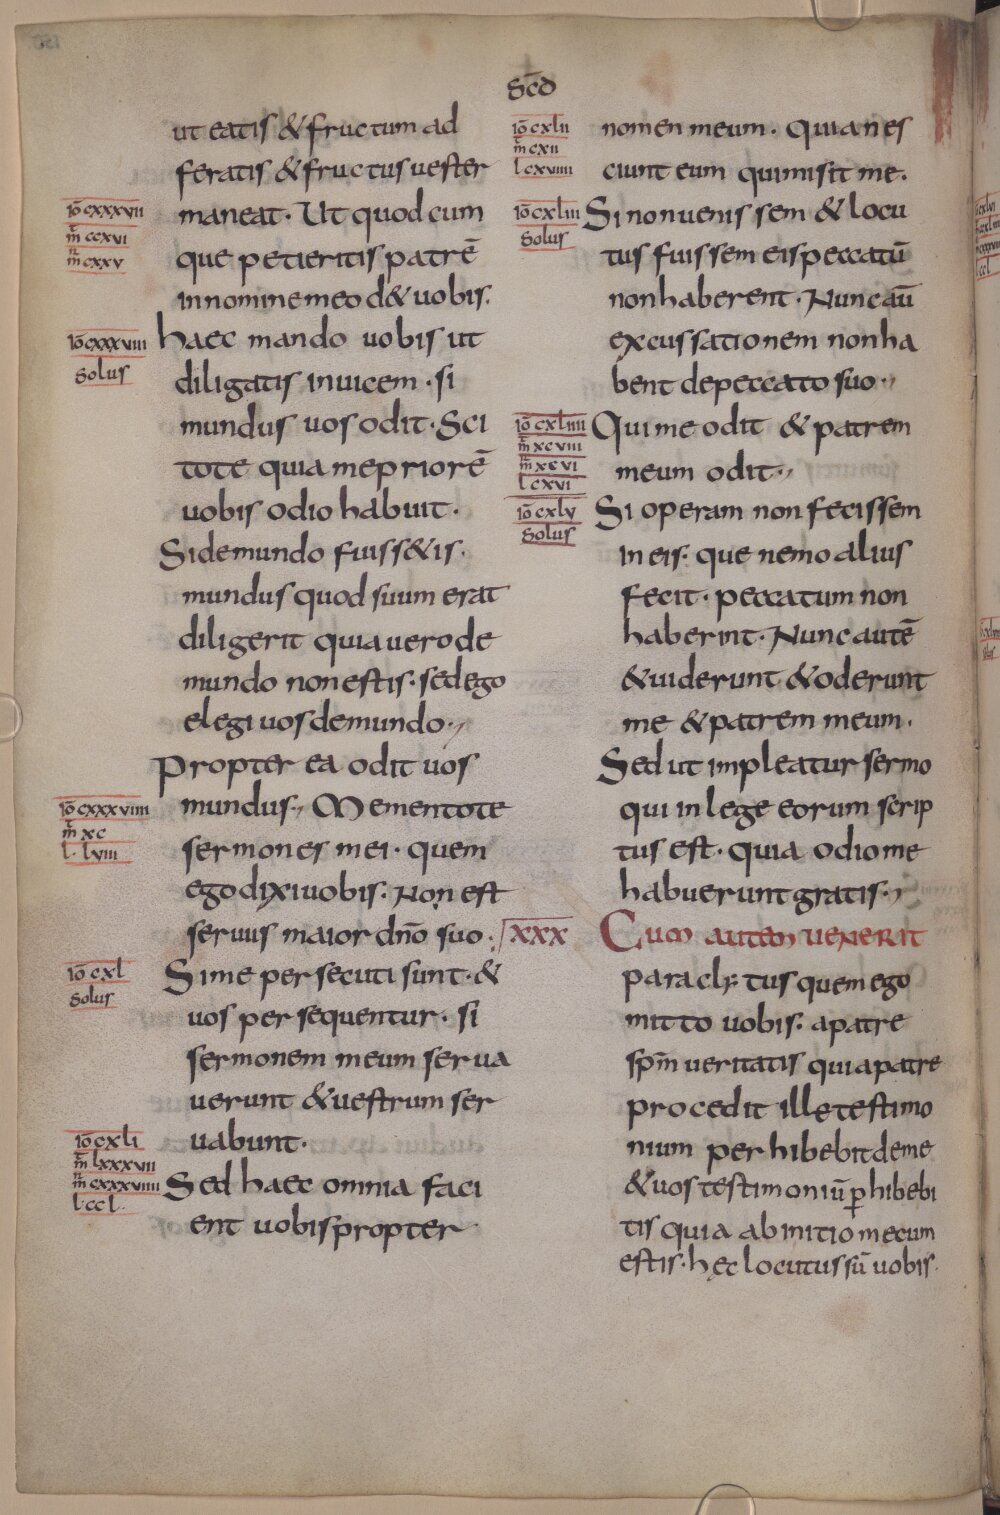 sc̄d
ut eatis & fructum ad
feratis & fructus uester
iō cxxxvii
m̄ ccxvi
m̄ cxxv
maneat · Ut quod cum
que petieritis patrē
in nomine meo d& uobis ·
iō cxxxviii
solus
haec mando uobis ut
diligatis inuicem · si
mundus uos odit · Sci
tote quia me priorē
uobis odio habuit ·
Si de mundo fuiss&is ·
mundus quod suum erat
diligerit quia uero de
mundo non estis · sed ego
elegi uos de mundo ·,
Propter ea odit uos
iō cxxxviiii
m̄ xc
l · lviii
mundus ·, Mementote
sermones mei · quem
ego dixi uobis · Non est
seruus maior dn̄o suo ·
iō cxl
solus
Si me persecuti sunt · &
uos persequentur · si
sermonem meum serua
uerunt & uestrum ser
iō cxli
m̄ lxxxvii
m̄ cxxxviiii
l · ccl ·
uabunt ·
Sed haec omnia faci
ent uobis propter
iō cxlii
m̄ cxii
l cxviiii
nomen meum · Quia nes
ciunt eum qui misit me ·
iō cxliii
solus
Si non uenissem & locu
tus fuissem eis peccatū
non haberent · Nunc aū
excussationem non ha
bent de peccato suo ·,
iō cxliiii
m̄ xcviii
m̄ xcvi
l cxvi
Qui me odit & patrem
meum odit ·,
iō cxlv
solus
Si operam non fecissem
in eis · que nemo alius
fecit · peccatum non
haberint · Nunc autē
& uiderunt & oderunt
me & patrem meum ·
Sed ut impleatur sermo
qui in lege eorum scrip
tus est · quia odio me
habuerunt gratis ·,
xxx
Cum autem uenerit
paraclytus quem ego
mitto uobis · a patre
sp̄m ueritatis qui a patre
procedit ille testimo
nium perhibebit de me
& uos testimoniū ꝑhibebi
tis quia ab initio mecum
estis · hęc locutus sū uobis ·